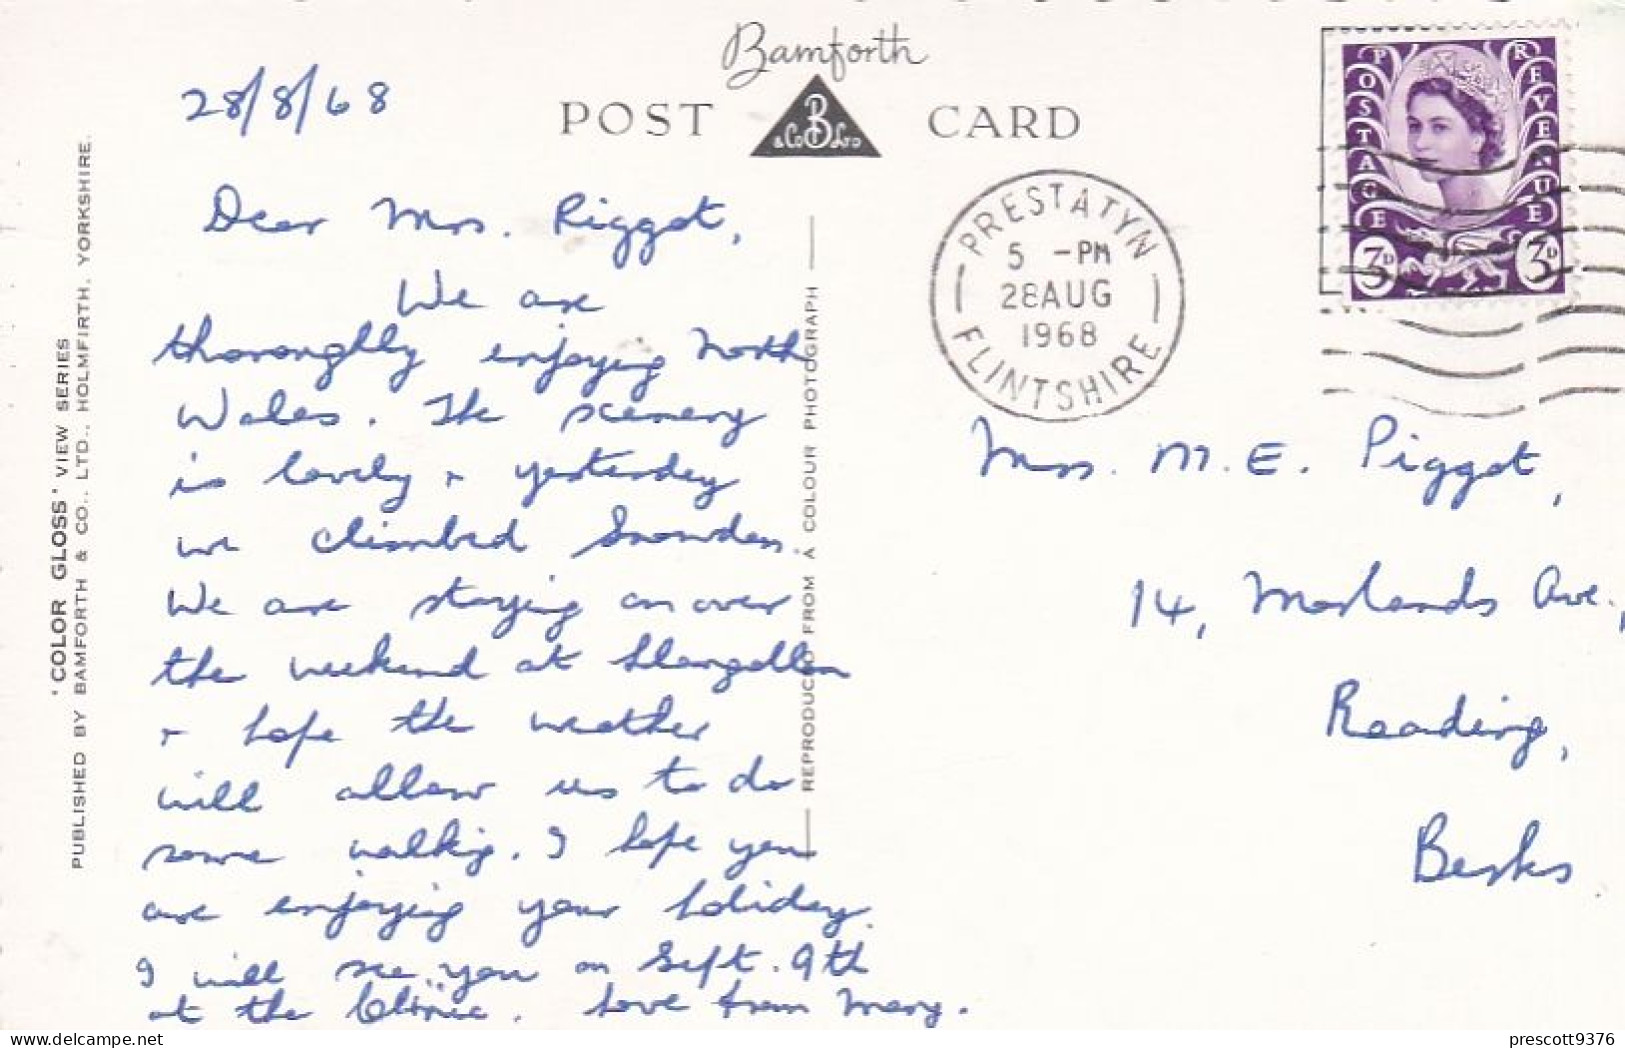 Bamforth
POST CARD
B
& Co Ltd
28/8/68
Dear Mrs. Piggot,
We are
thoroughly enjoying North
Wales. The scenery
is lovely & yesterday
we climbed Snowden.
We are staying on over
the weekend at Llangollen
& hope the weather
will allow us to do
some walking. I hope you
are enjoying your holiday.
I will see you on Sept. 9th
at the Clinic. Love from Mary.
'COLOR GLOSS' VIEW SERIES
PUBLISHED BY BAMFORTH & CO., LTD., HOLMFIRTH, YORKSHIRE.
REPRODUCED FROM A COLOUR PHOTOGRAPH
PRESTATYN
5 - PM
28 AUG
1968
FLINTSHIRE
POSTAGE
REVENUE
3D
3D
Mrs. M. E. Piggot,
14, Morlands Ave.,
Reading,
Berks.
www.delcampe.net
prescott9376